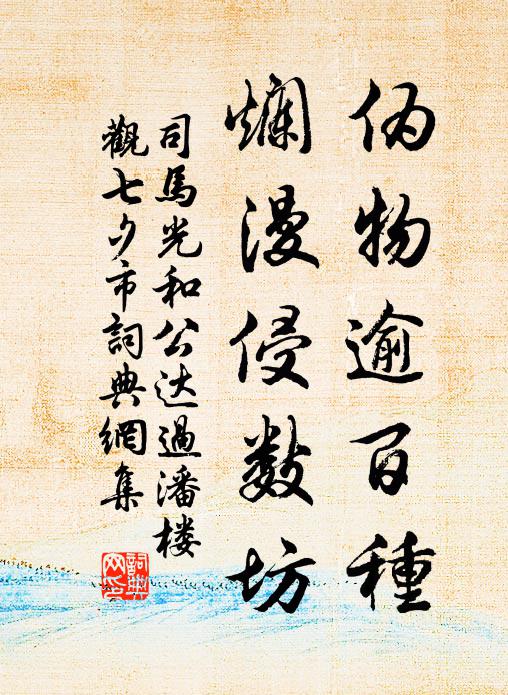 伪物逾百種
爛漫侵数坊
司馬光和公达過潘楼
觀七夕市詞典網集
詞典网集